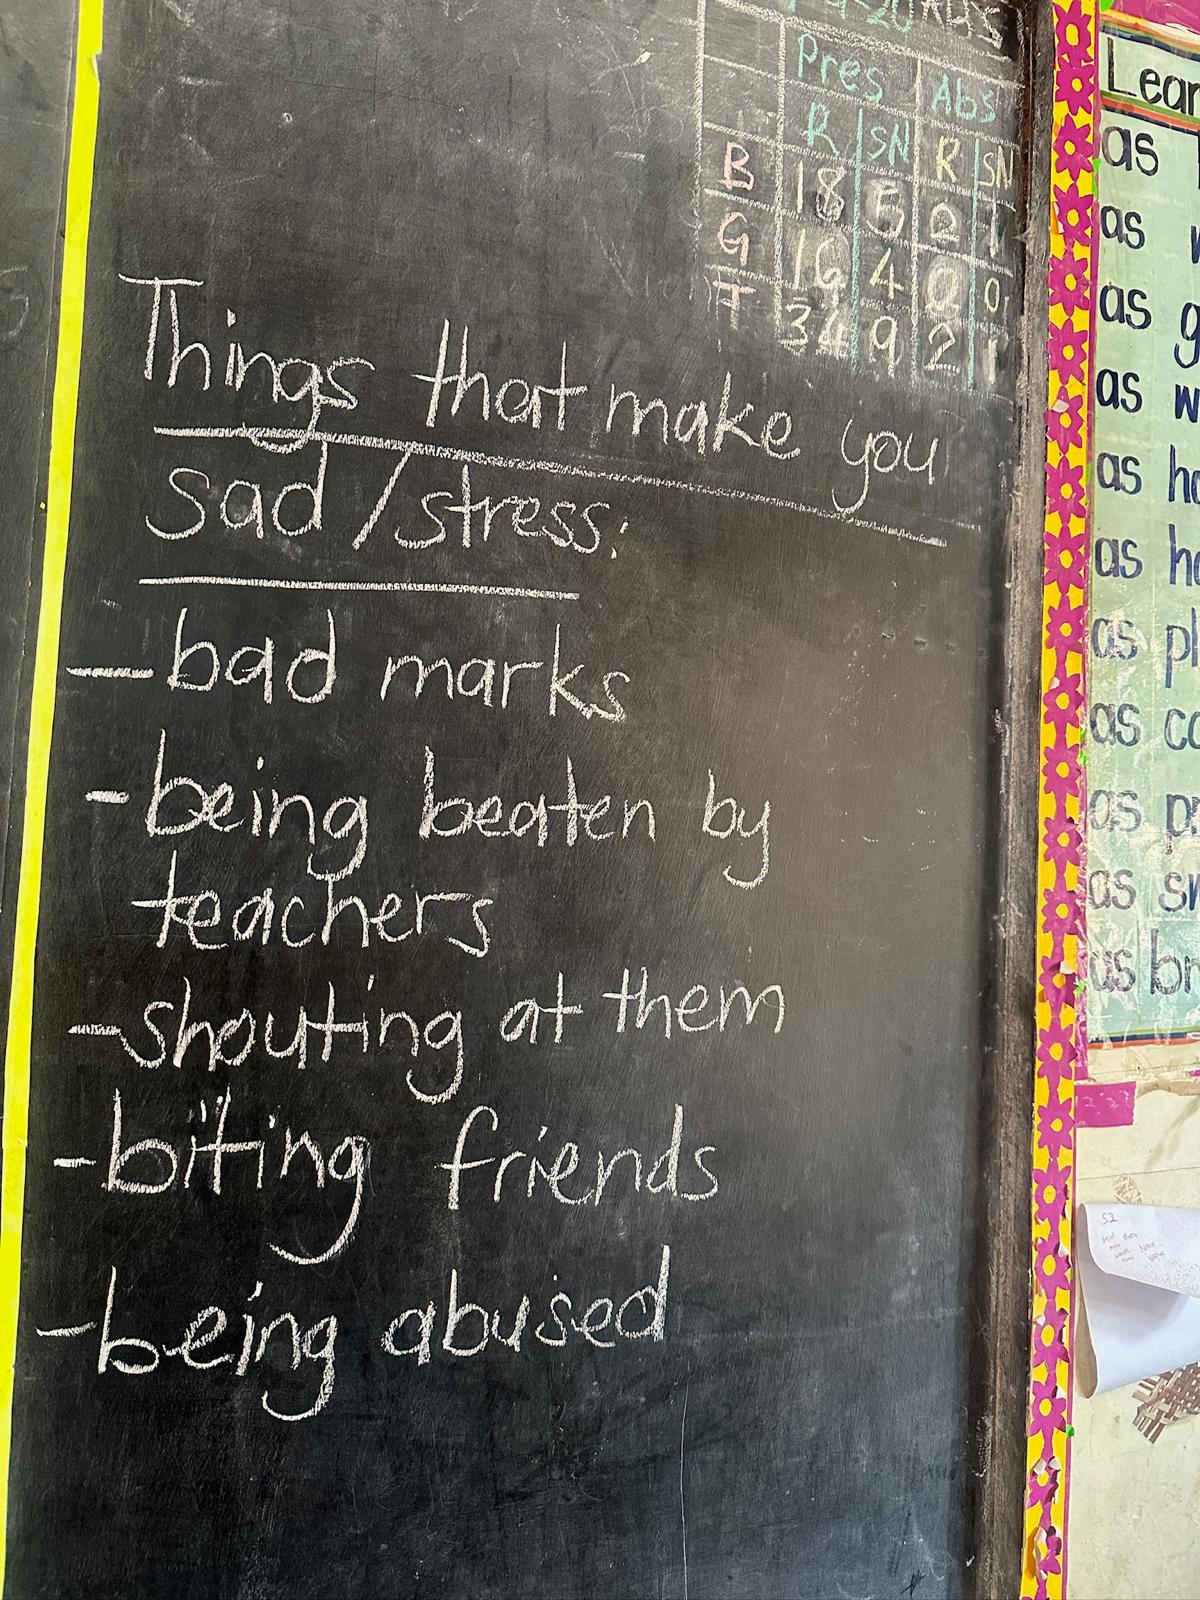 Pres Abs
R SN R SN
B 18 5 2 1
G 16 4 0 0
T 34 9 2 1
Things that make you
sad / stress:
- bad marks
- being beaten by
teachers
- shouting at them
- biting friends
- being abused
as
as
as
as
as
as
as
as
as
as
as